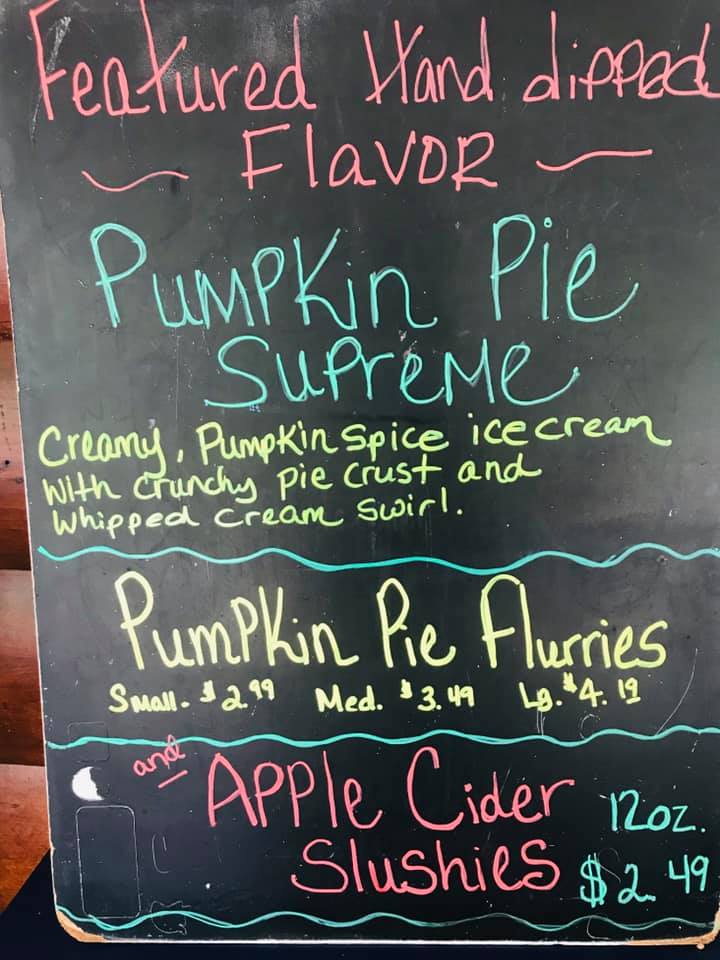 Featured Hand dipped
Flavor
Pumpkin Pie
Supreme
Creamy, Pumpkin Spice ice cream
with crunchy pie crust and
whipped cream swirl.
Pumpkin Pie Flurries
Small - $2.99 Med. $3.49 Lg. $4.19
and Apple Cider 12oz.
Slushies $2.49